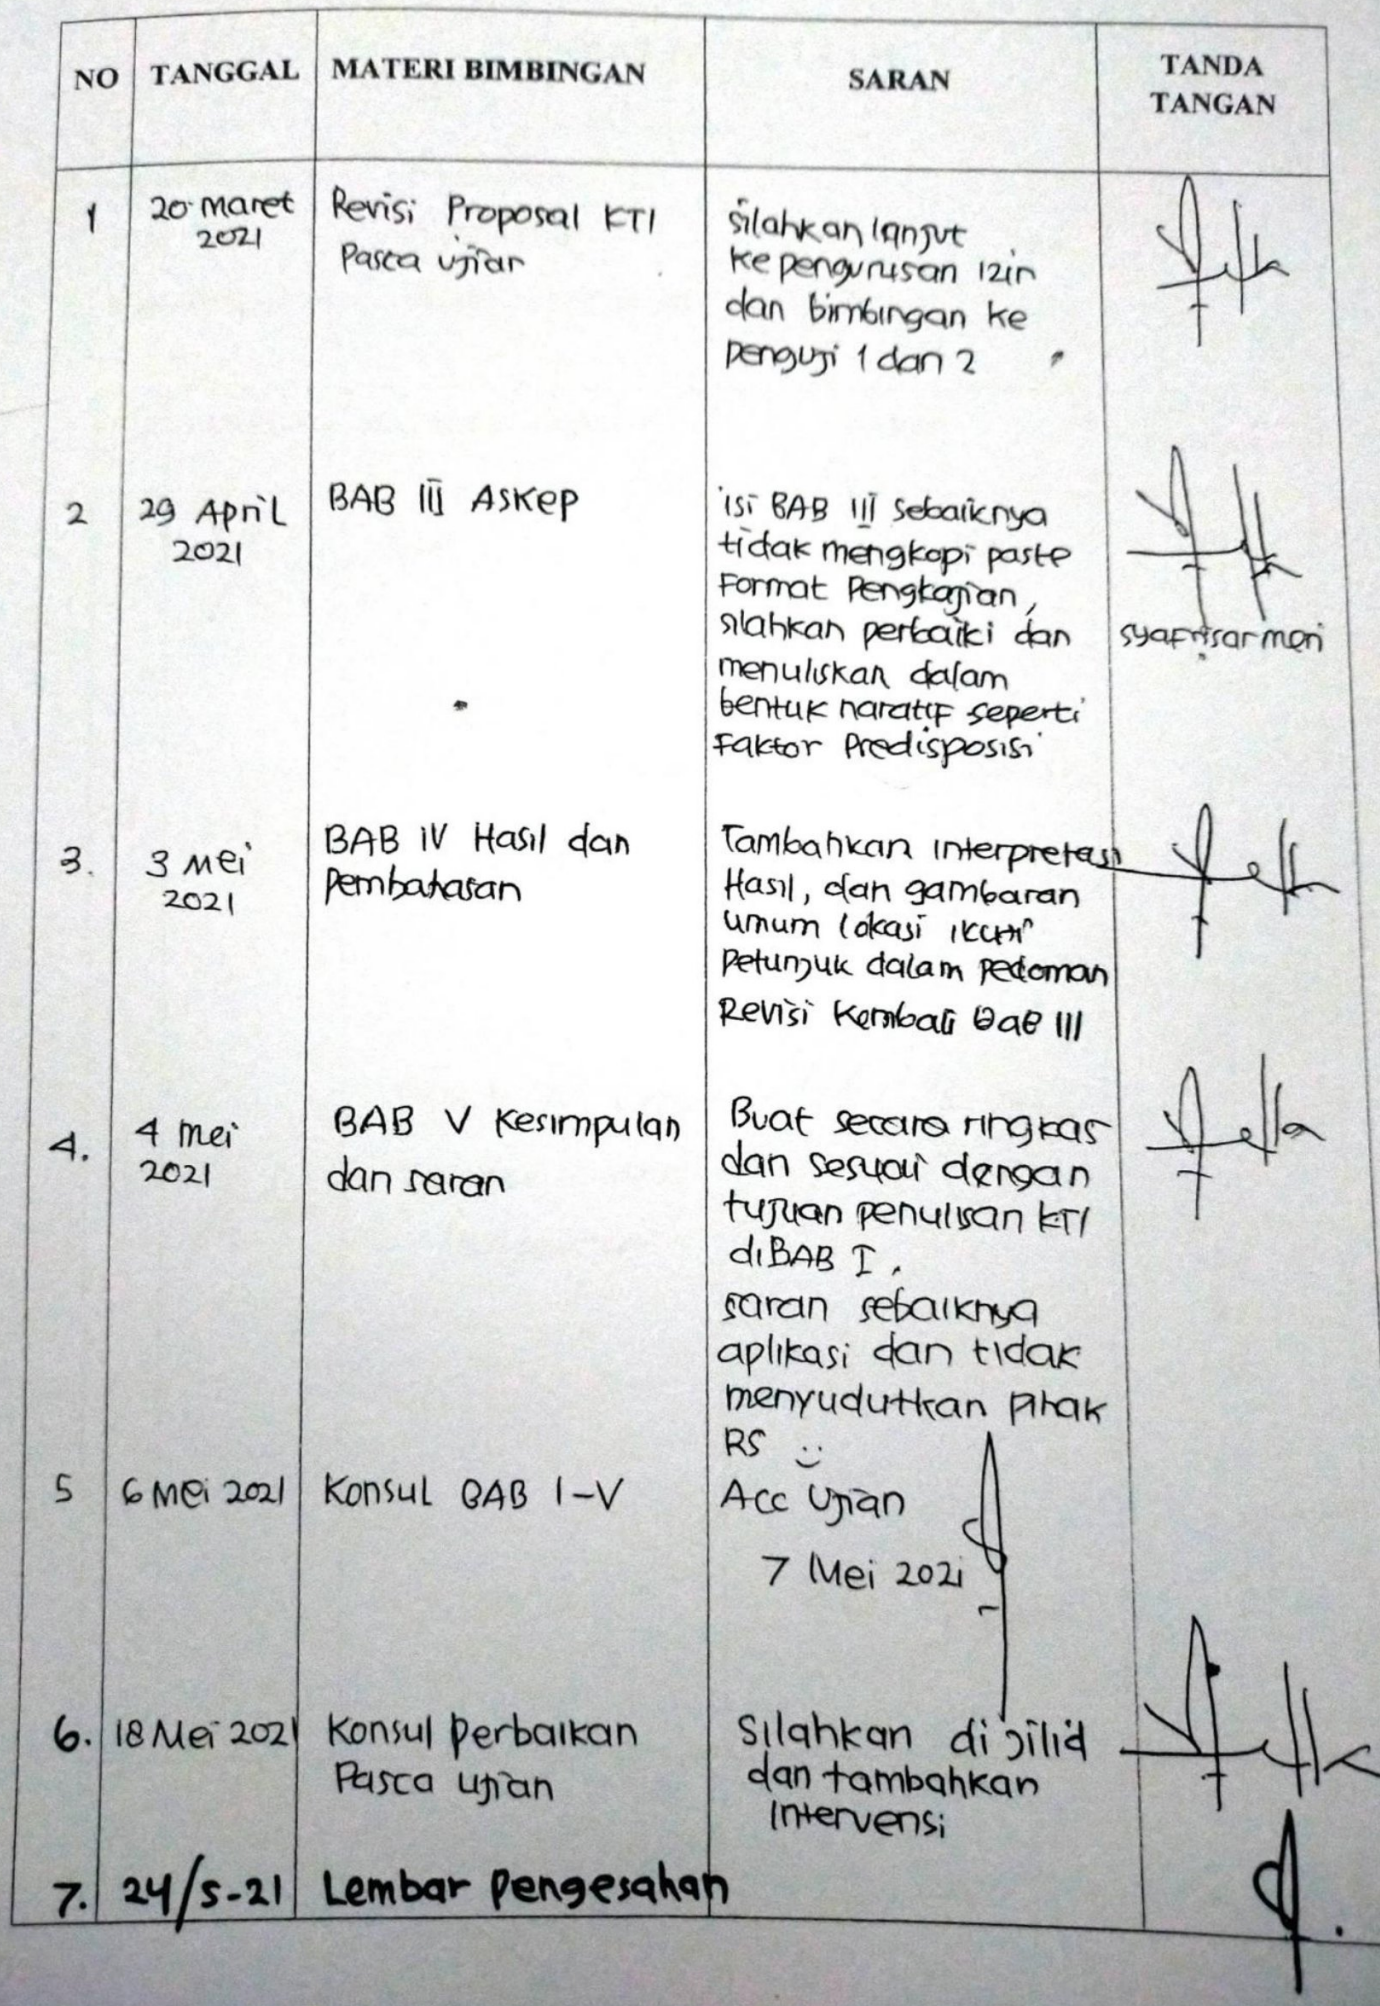 NO TANGGAL MATERI BIMBINGAN SARAN TANDA TANGAN
1 20 Maret 2021
Revisi Proposal KTI
Pasca ujian
silahkan lanjut
ke pengurusan izin
dan bimbingan ke
penguji 1 dan 2
2 29 April 2021
BAB III ASKEP
isi BAB III Sebaiknya
tidak mengkopi paste
Format Pengkajian,
silahkan perbaiki dan
menuliskan dalam
bentuk naratif seperti
Faktor Predisposisi
3. 3 Mei 2021
BAB IV Hasil dan
Pembahasan
Tambahkan interpretasi
Hasil, dan gambaran
umum lokasi ikuti
petunjuk dalam pedoman
Revisi Kembali BaB III
4. 4 mei 2021
BAB V Kesimpulan
dan saran
Buat secara ringkas
dan sesuai dengan
tujuan penulisan KTI
di BAB I.
saran sebaiknya
aplikasi dan tidak
menyudutkan pihak
RS
5 6 Mei 2021
Konsul BAB I-V
Acc Ujian
7 Mei 2021
6. 18 Mei 2021
Konsul perbaikan
Pasca ujian
Silahkan di jilid
dan tambahkan
Intervensi
7. 24/5-21 Lembar pengesahan